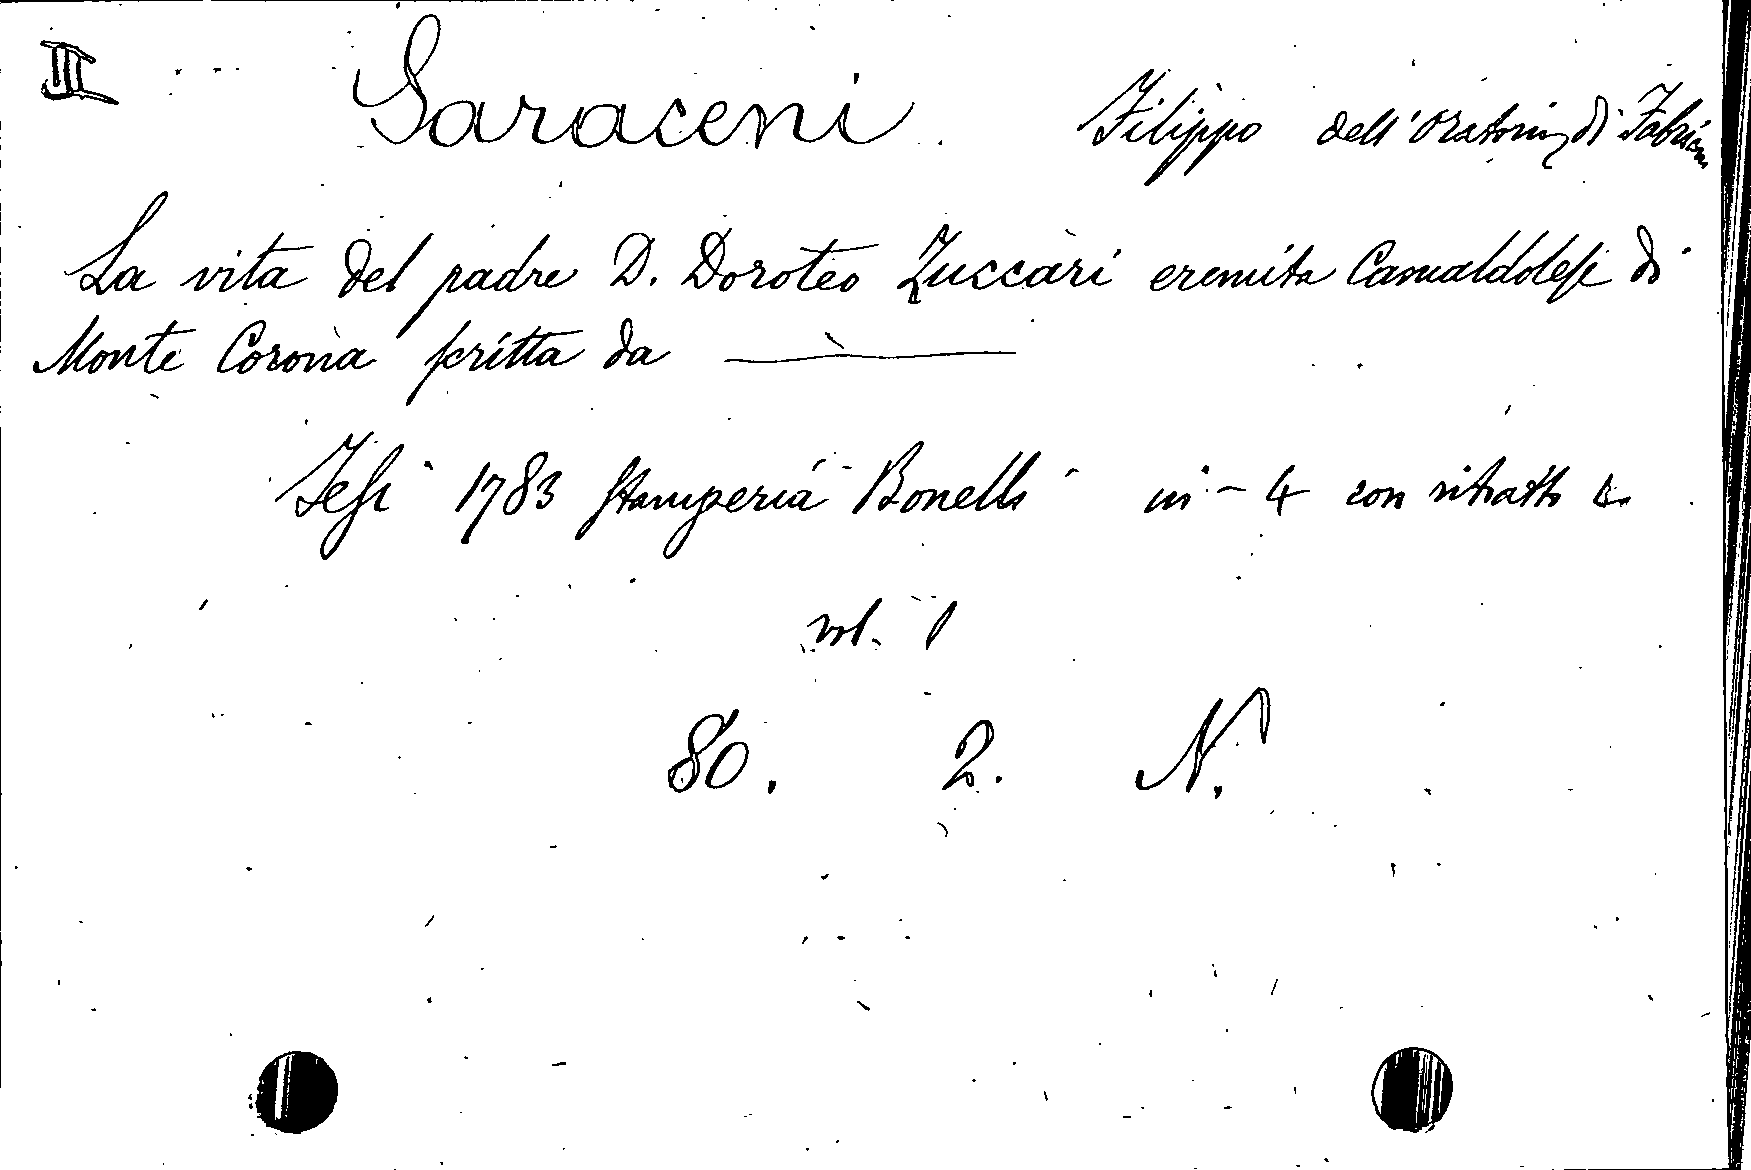 III Saraceni Filippo dell'Oratorio di Fabriano
La vita del padre D. Doroteo Zuccari eremita Camaldolese di
Monte Corona scritta da
Jesi 1783 stamperia Bonelli in-4 con ritratto
vol. 1
80. 2. N.